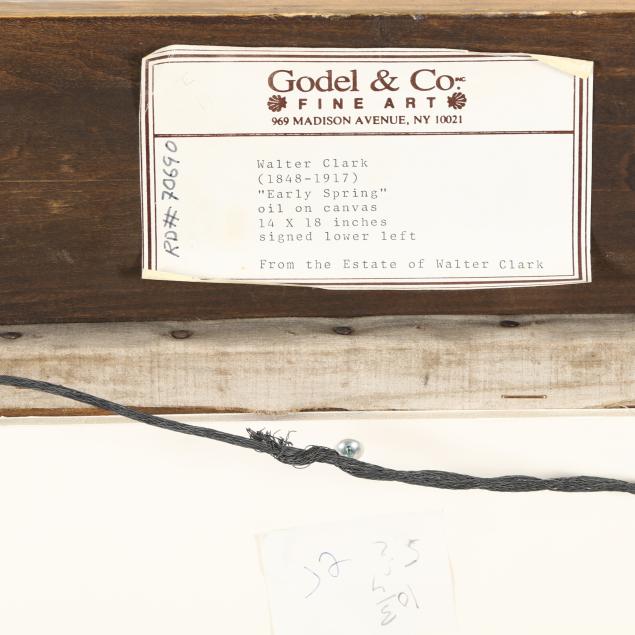 Godel & Co. INC
FINE ART
969 MADISON AVENUE, NY 10021
RD# 70690
Walter Clark
(1848-1917)
"Early Spring"
oil on canvas
14 X 18 inches
signed lower left
From the Estate of Walter Clark